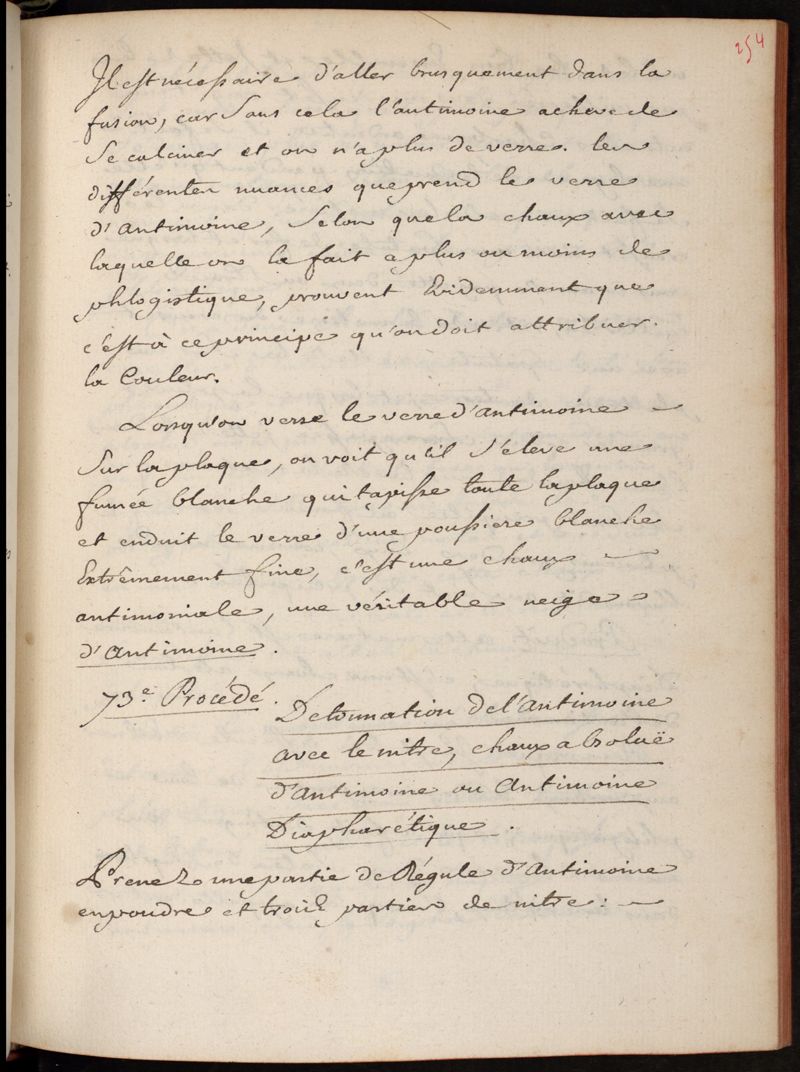 254
Il est nécessaire d'aller brusquement dans la
fusion, car Sans cela l'antimoine acheve de
Se calciner et on n'a plus de verre. les
différentes nuances que prend le verre
d'antimoine, Selon que la chaux avec
laquelle on la fait a plus ou moins de
phlogistique, prouvent Evidemment que
c'est à ce principe qu'on doit attribuer.
la Couleur.
Lorsqu'on verse le verre d'antimoine
Sur la plaque, on voit qu'il S'éleve une
fumée blanche qui tapisse toute la plaque
et enduit le verre d'une poussiere blanche
Extrêmement fine, c'est une chaux
antimoniale, une véritable neige
d'antimoine.
73e. Procédé.
Detonnation de l'antimoine
avec le nitre, chaux absoluë
d'antimoine ou Antimoine
Diapharétique.
Prenez une partie de Régule d'Antimoine
en poudre et trois parties de nitre: